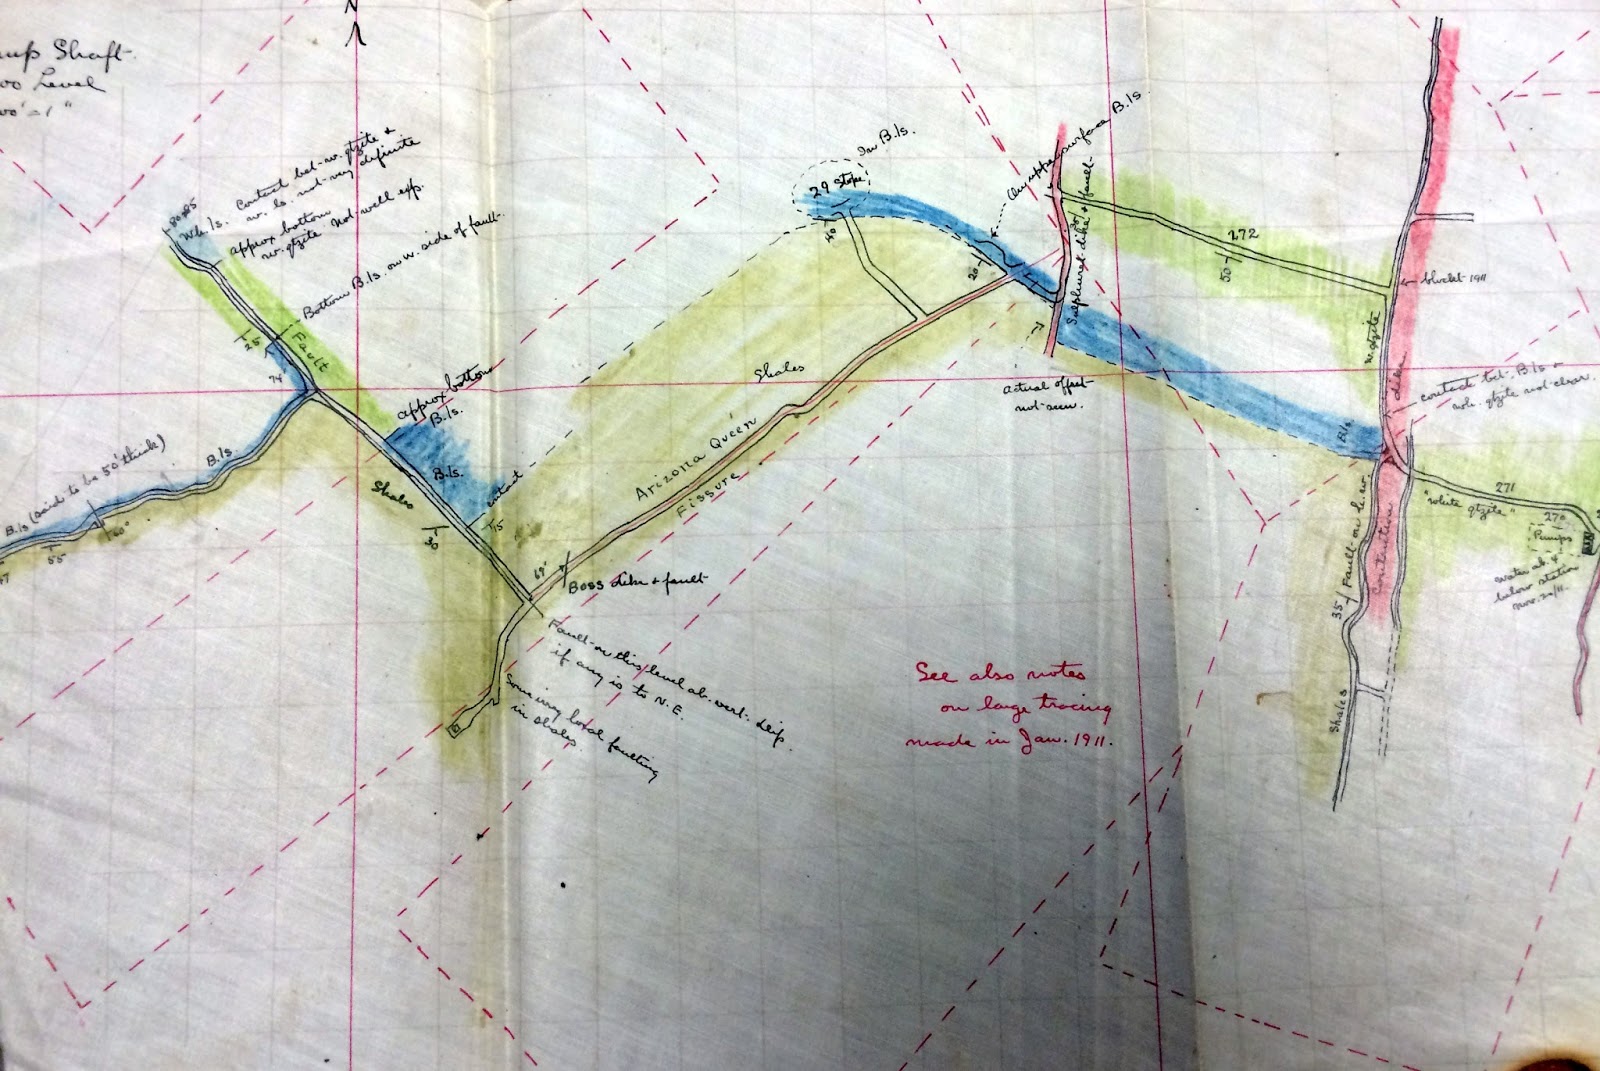 Shaft.
Level
N
80-85
Wh. ls. Contact bet. w. qtzite &
w. ls. not very definite
approx bottom
w. qtzite not well exp.
Bottom B. ls. on w. side of fault.
Fault
25
74
approx bottom
B. ls.
B. ls.
contact
15
Shales
30
B. ls (said to be 50' thick)
B. ls.
60°
55
47
69°
Boss dike & fault
Fault on this level ab. vert. dip.
if any is to N.E.
Some irreg local faulting
in shales.
Arizona Queen
Fissure
Shales
29 Stope
In B. ls.
40
20
On upper surface B. ls.
Sulphuret dike & fault
Actual offset
not seen.
272
50
w. qtzite
dike
B. ls
contact bet. B. ls &
wh. qtzite not clear.
271
"white qtzite"
270
Pumps
water ab. 4'
below station
Nov. 20/11.
35
Fault on h. w.
Shales
See also notes
on large tracing
made in Jan. 1911.